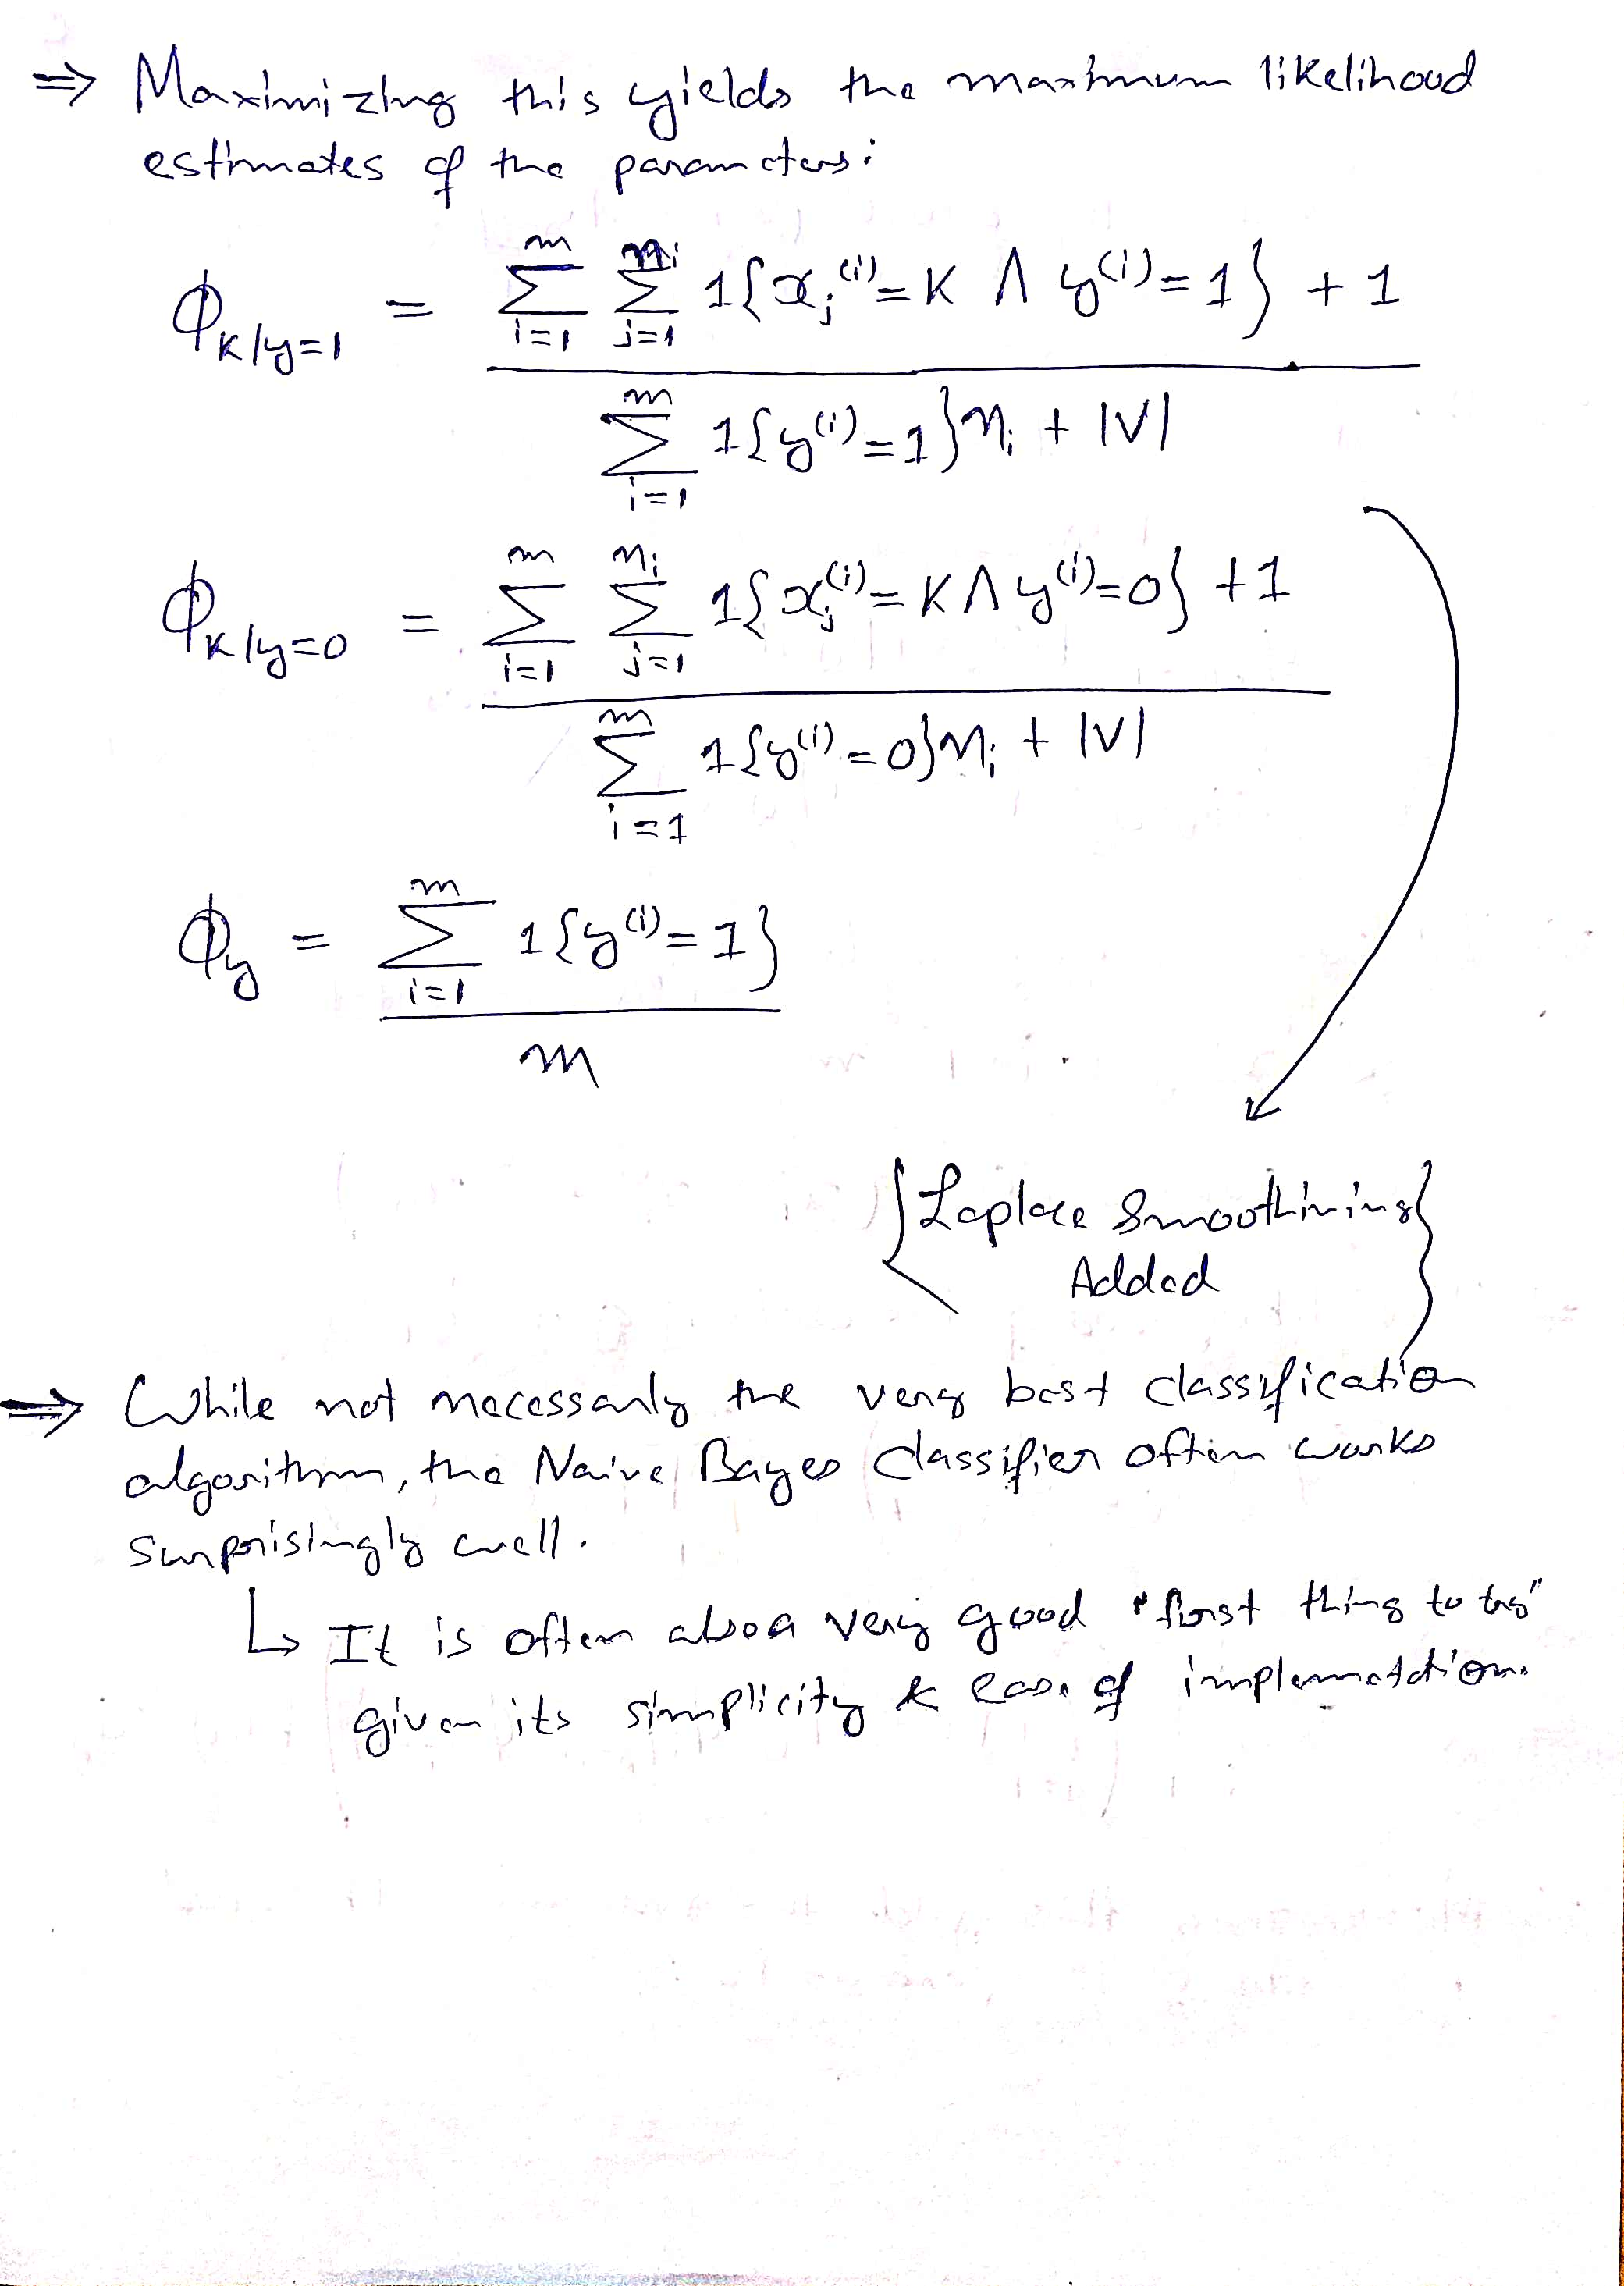 ⇒ Maximizing this yields the maximum likelihood
estimates of the parameters:
Φ_{K|y=1} = (∑_{i=1}^{m} ∑_{j=1}^{n_i} 1{x_j^{(i)} = K ∧ y^{(i)} = 1} + 1) / (∑_{i=1}^{m} 1{y^{(i)} = 1} n_i + |V|)
Φ_{K|y=0} = (∑_{i=1}^{m} ∑_{j=1}^{n_i} 1{x_j^{(i)} = K ∧ y^{(i)} = 0} + 1) / (∑_{i=1}^{m} 1{y^{(i)} = 0} n_i + |V|)
Φ_y = (∑_{i=1}^{m} 1{y^{(i)} = 1}) / m
{Laplace Smoothining
Added}
⇒ While not necessarily the very best classification
algorithm, the Naive Bayes Classifier often works
surprisingly well.
↳ It is often also a very good "first thing to try"
given its simplicity & ease of implementation.